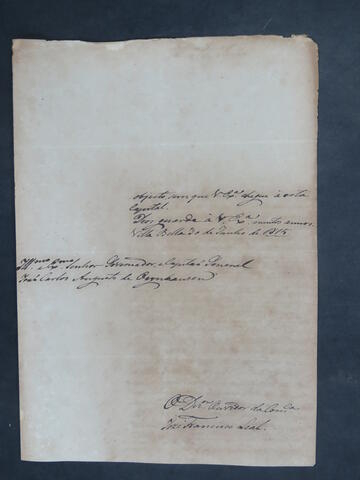 objecto sem que V. Exª. chegue a esta
Capital.
Deos guarde a V. Exª. muitos annos.
Villa Bella 30 de Junho de 1815
Illmo. e Exmo. Senhor Governador, e Capitão General
João Carlos Augusto de Oeynhausen
O Dr. Ouvidor da Comca.
José Francisco Leal.